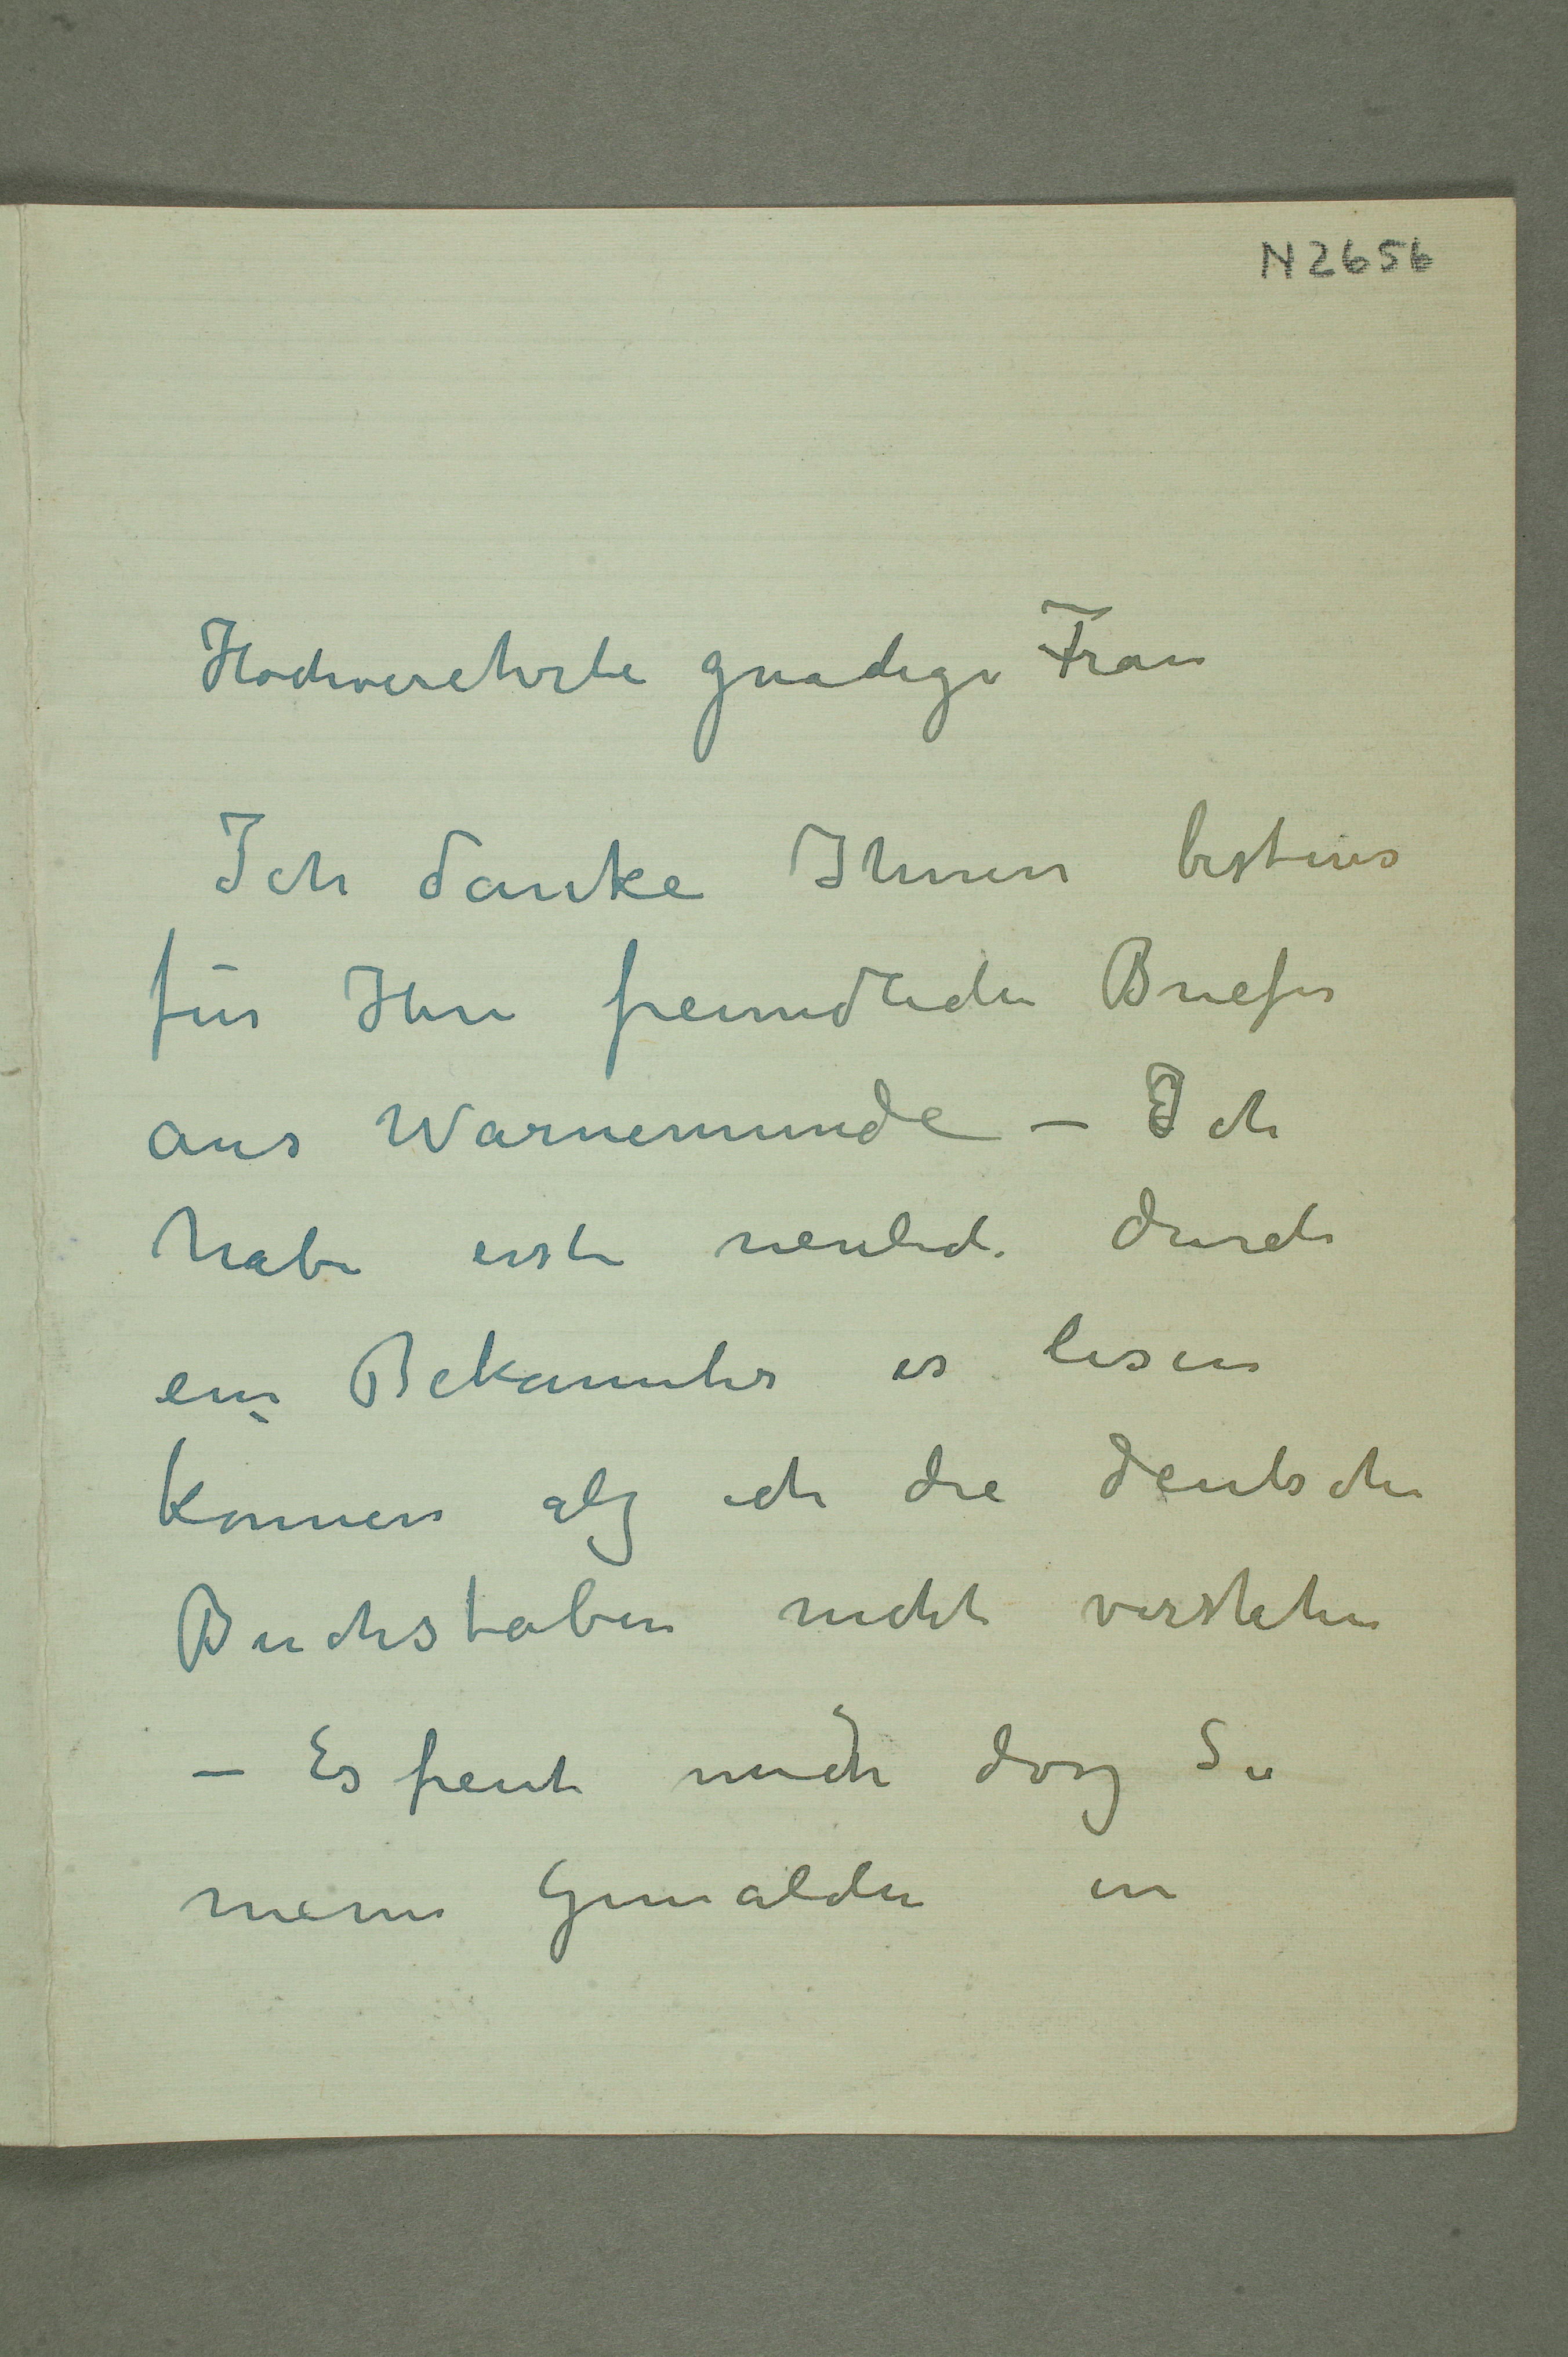 N 2656
Hochverehrte gnadige Frau
Ich danke Ihnen bestens
für Ihre freundliche Briefes
aus Warnemunde – Ich
habe erste neulich durch
ein Bekannter es lesen
konnen alz ich die deutsche
Buchstaben nicht verstehe
– Es freut mich dasz Sie
meine Gemälden in